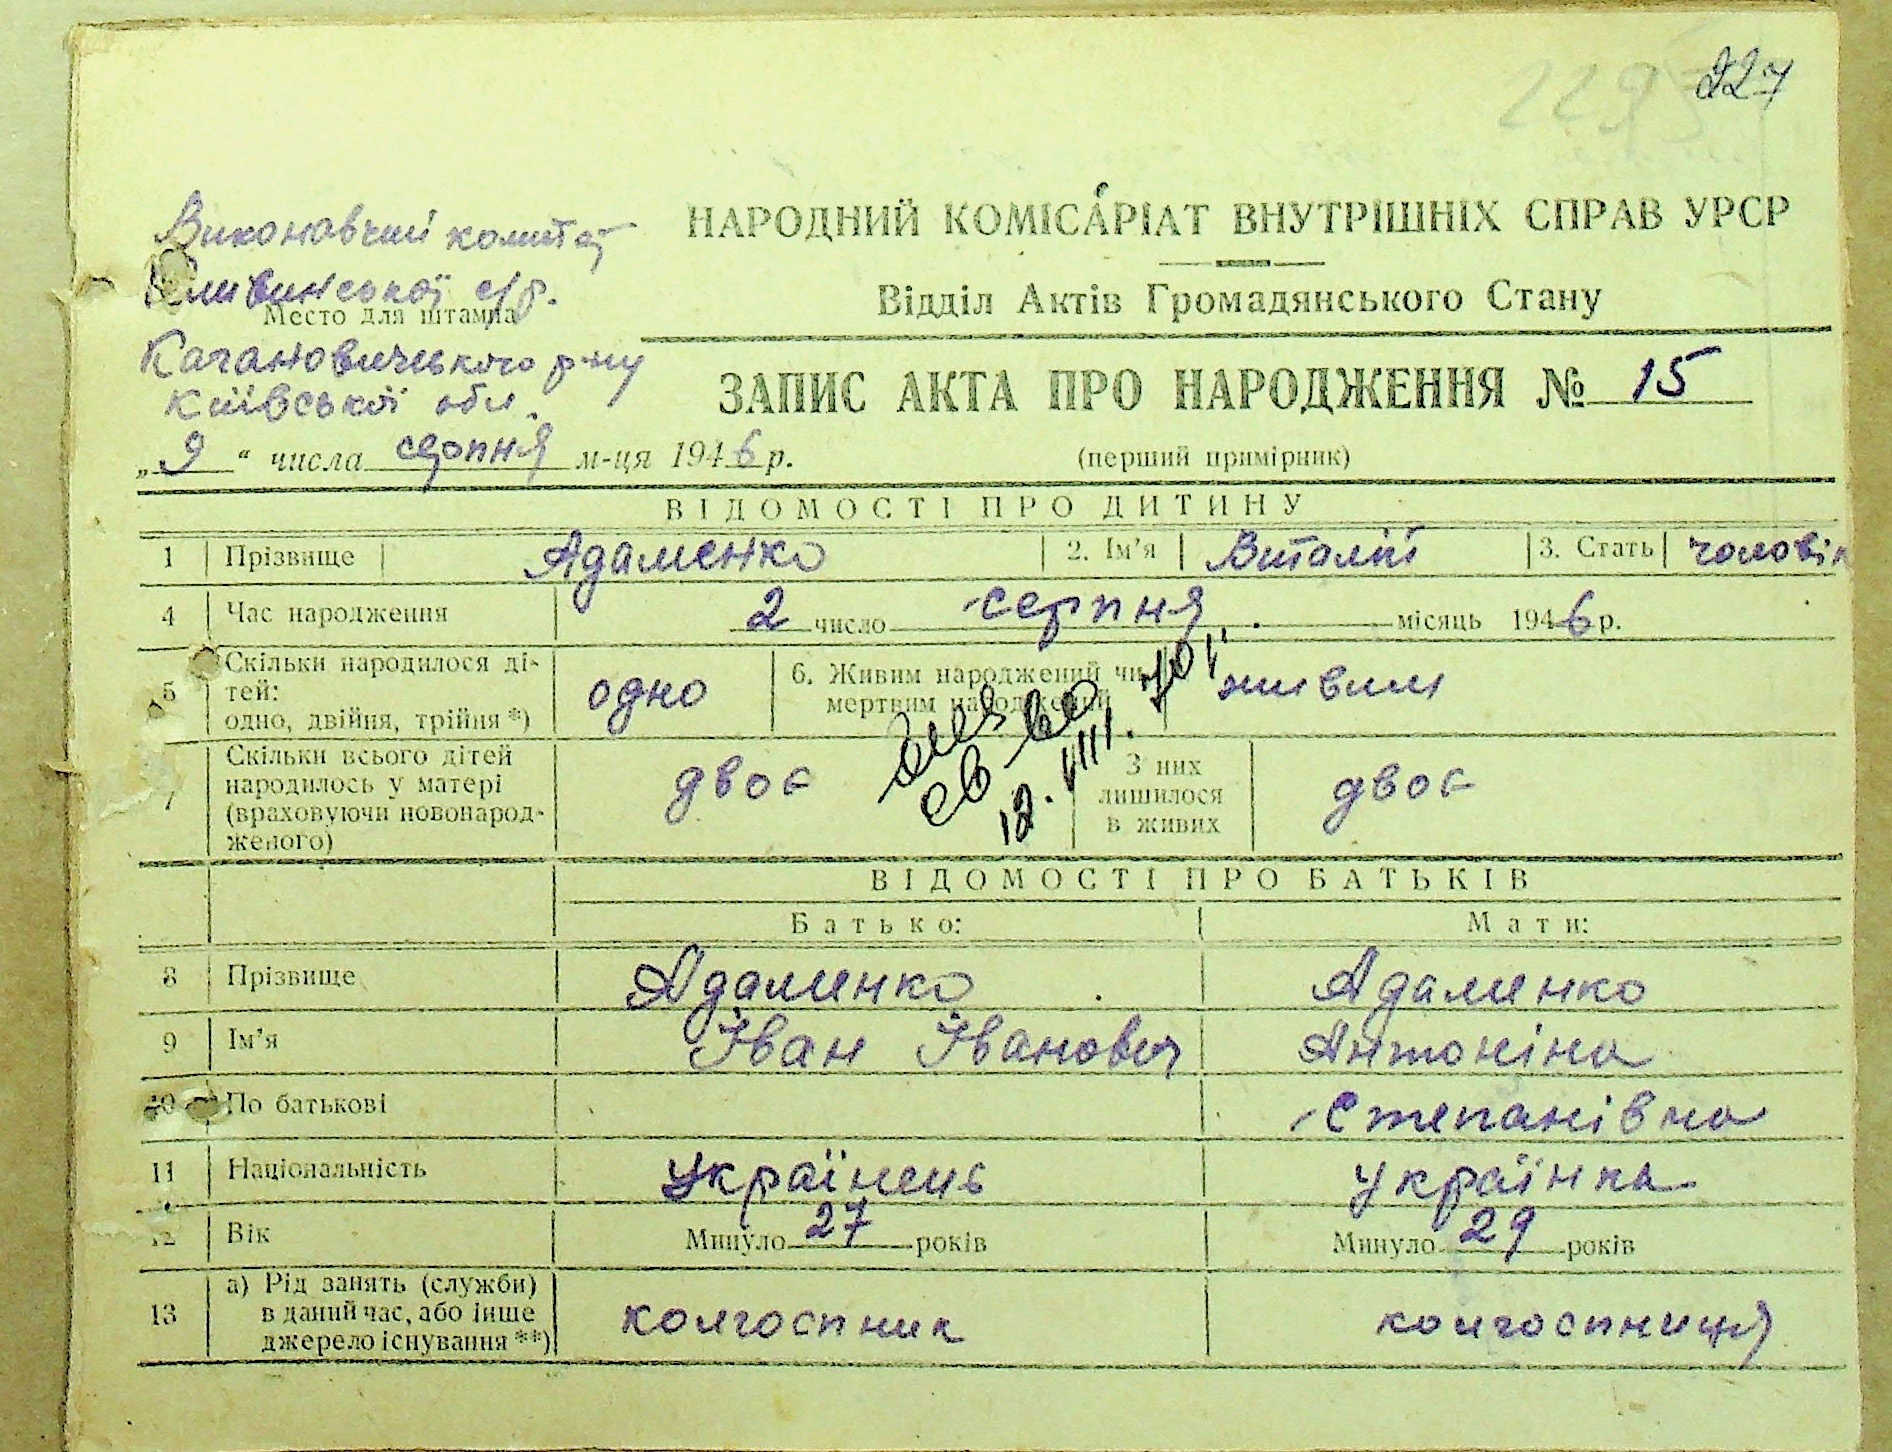 227
Виконавчий комітет
НАРОДНИЙ КОМІСАРІАТ ВНУТРІШНІХ СПРАВ УРСР
с/р.
Место для штампа
Відділ Актів Громадянського Стану
Кагановичського р-ну
Київської обл.
ЗАПИС АКТА ПРО НАРОДЖЕННЯ № 15
„ 9 “ числа серпня м-ця 1946 р.
(перший примірник)
ВІДОМОСТІ ПРО ДИТИНУ
1 Прізвище Адаменко 2. Ім’я Віталій 3. Стать чоловік
4 Час народження 2 число серпня місяць 1946 р.
5 Скільки народилося ді-
тей:
одно, двійня, трійня *) одно 6. Живим народжений чи
мертвим народжений живим
7 Скільки всього дітей
народилось у матері
(враховуючи новонарод-
женого) двоє З них
лишилося
в живих двоє
св-во
12. VIII. 70 г.
ВІДОМОСТІ ПРО БАТЬКІВ
Батько: Мати:
8 Прізвище Адаменко Адаменко
9 Ім’я Іван Іванович Антоніна
10 По батькові Степанівна
11 Національність Українець українка
12 Вік Минуло 27 років Минуло 29 років
13 а) Рід занять (служби)
в даний час, або інше
джерело існування **) колгоспник колгоспниця